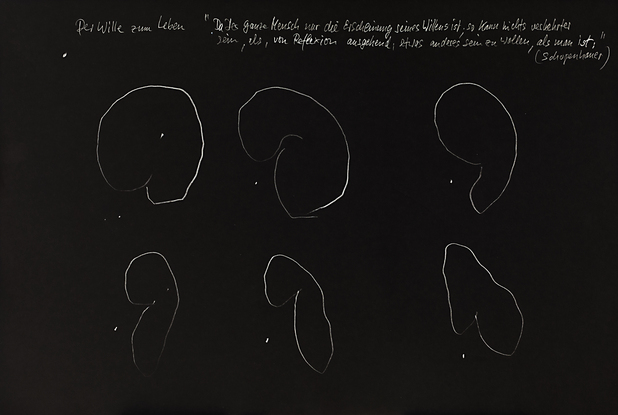 Der Wille zum Leben "Da der ganze Mensch nur die Erscheinung seines Willens ist, so kann nichts verkehrter
sein, als, von Reflexion ausgehend, etwas anderes sein zu wollen, als man ist;"
(Schopenhauer)